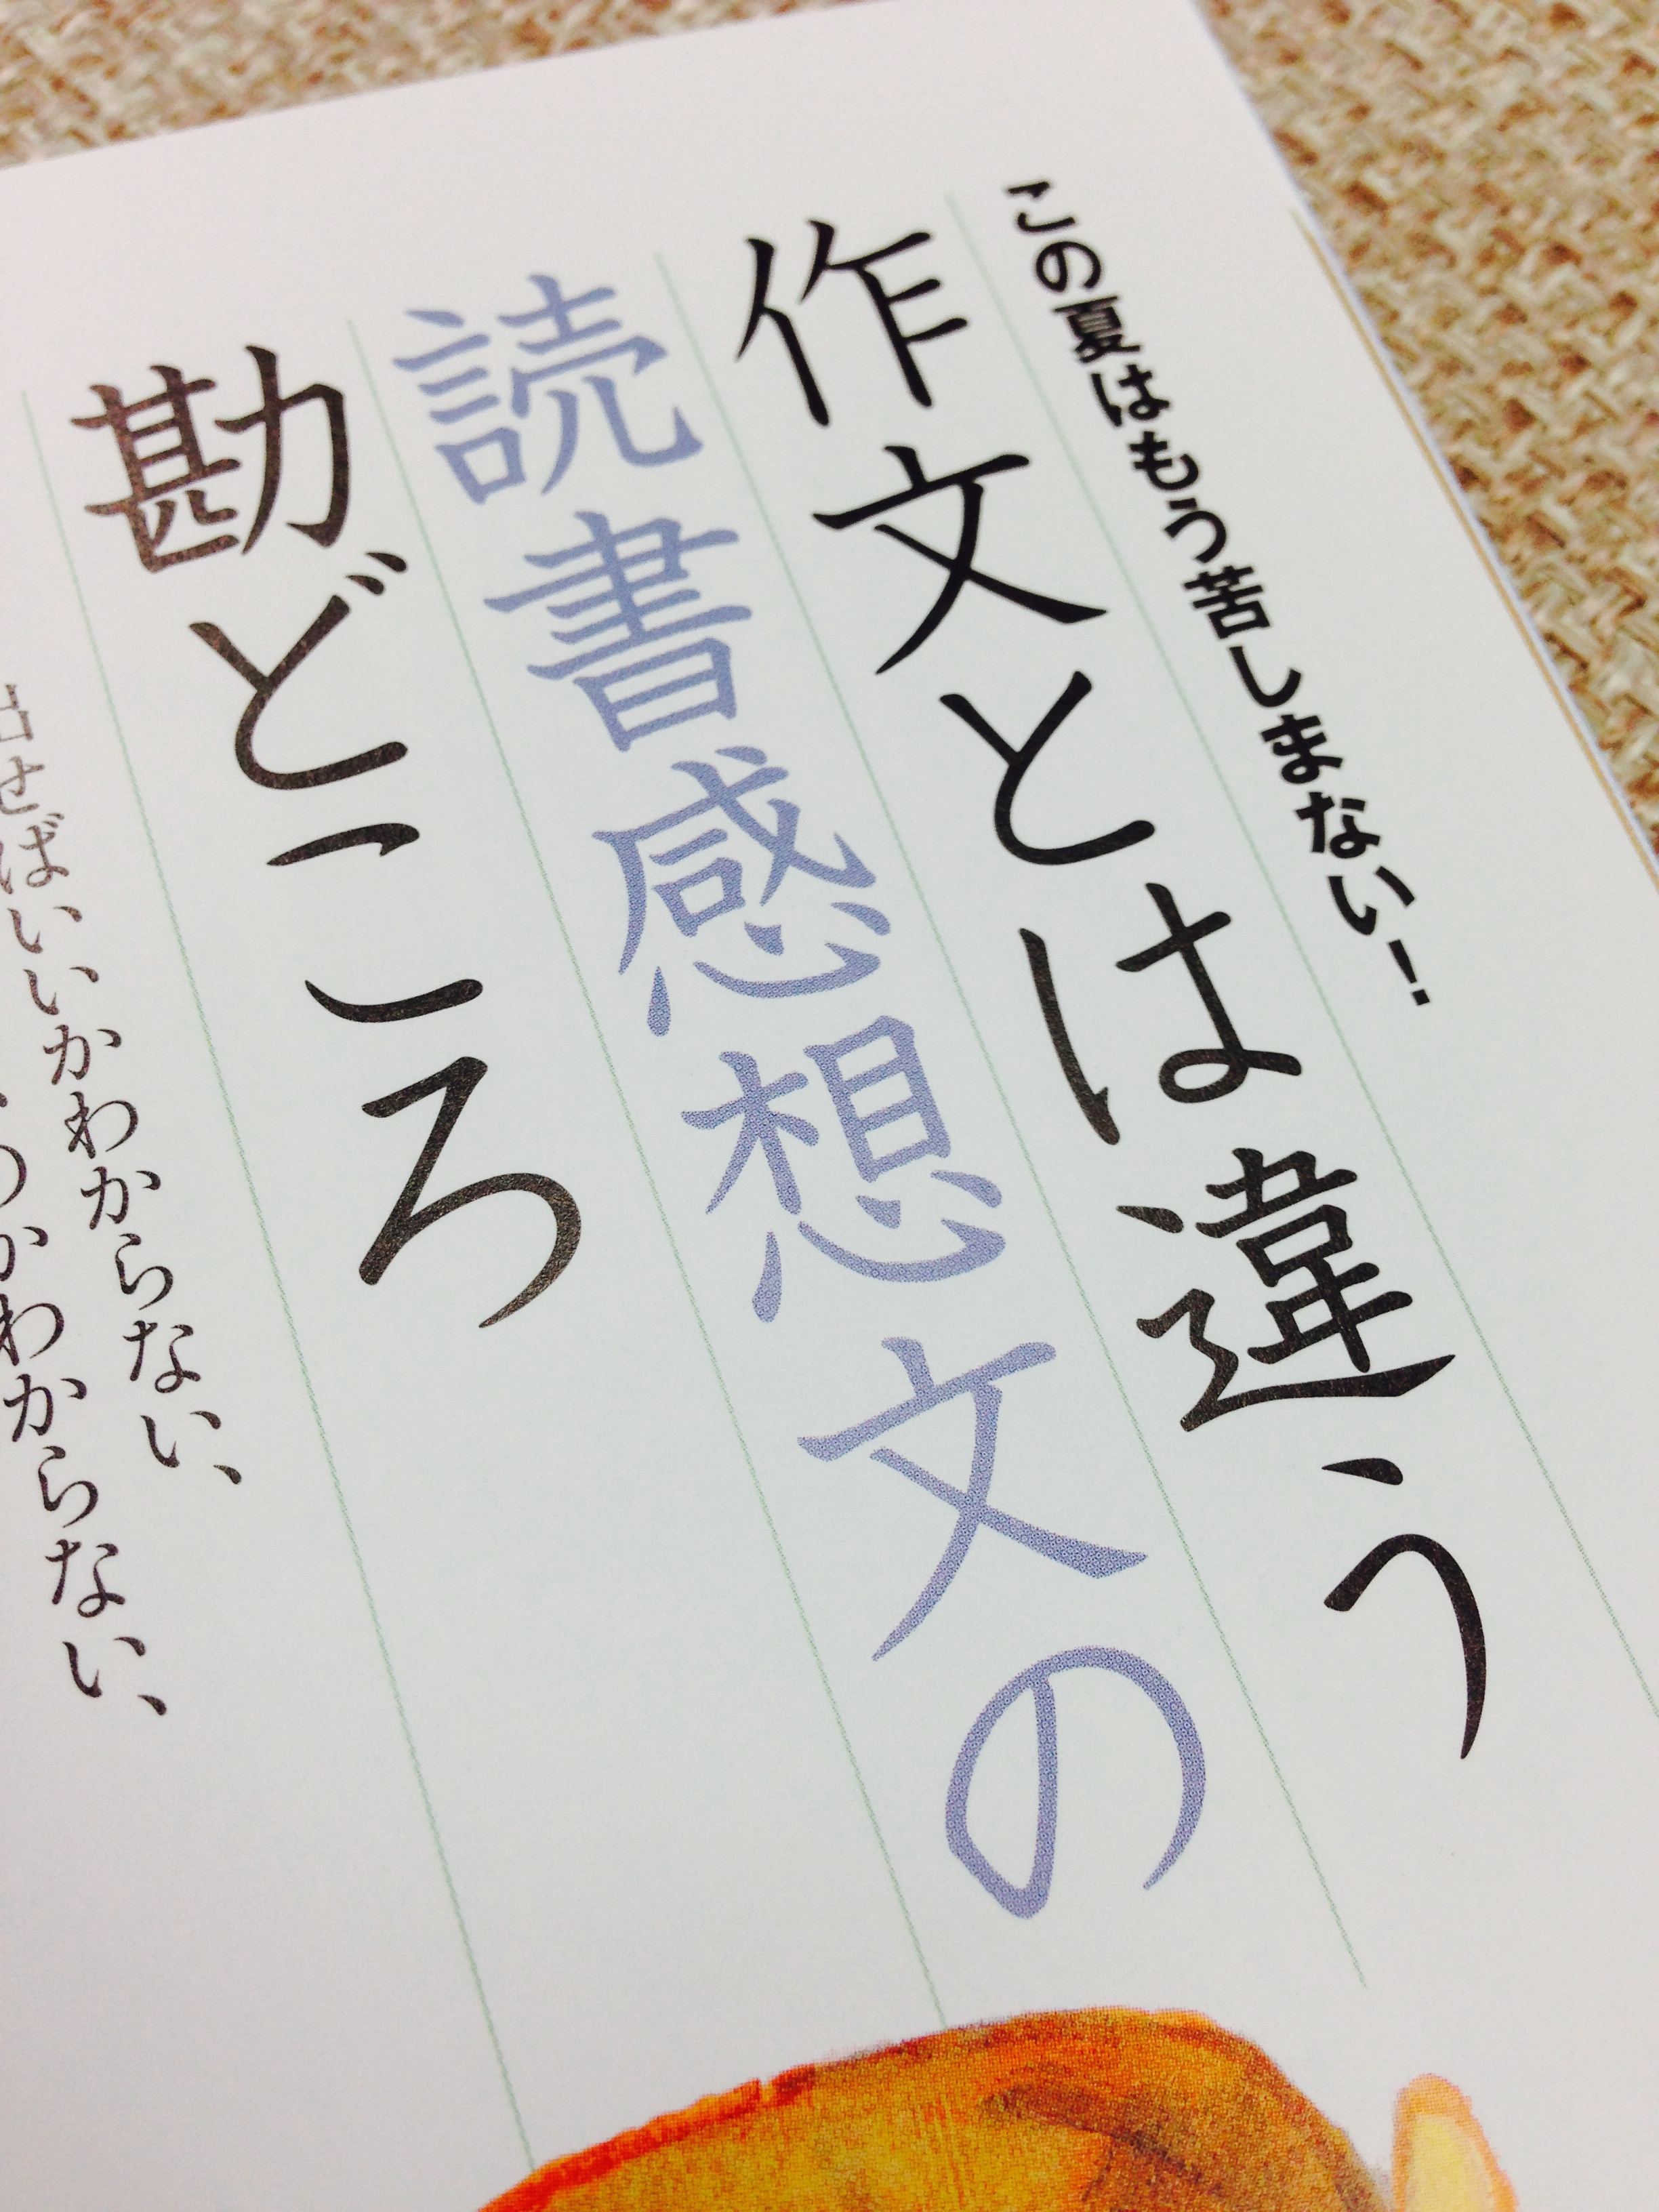 この夏はもう苦しまない!
作文とは違う
読書感想文の
勘どころ
出せばいいかわからない、
わからない、